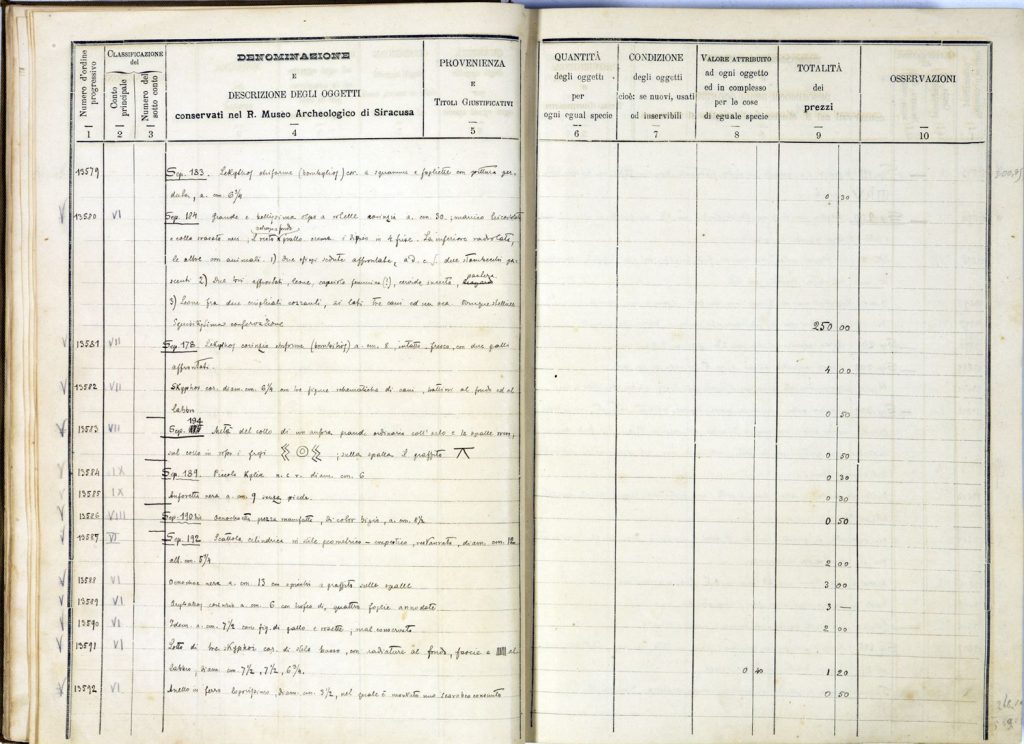 Numero d'ordine progressivo
CLASSIFICAZIONE del
Conto principale
Numero del sotto conto
DENOMINAZIONE
E
DESCRIZIONE DEGLI OGGETTI
conservati nel R. Museo Archeologico di Siracusa
PROVENIENZA
E
TITOLI GIUSTIFICATIVI
QUANTITÀ
degli oggetti
per
ogni egual specie
CONDIZIONE
degli oggetti
cioè: se nuovi, usati
od inservibili
VALORE ATTRIBUITO
ad ogni oggetto
ed in complesso
per le cose
di eguale specie
TOTALITÀ
dei
prezzi
OSSERVAZIONI
1 2 3 4 5 6 7 8 9 10
13579 Sep. 183. Lekythos oviforme (bombylios) cor. a squamme e foglietta con pittura per-
duta, a. cm. 6 3/4 0 30
13580 VI Sep. 184. Grande e bellissima olpe a rotelle corinzia a. cm. 30; manico
e collo neri; il resto pallo crema i dipeso in 4 frise. La inferiore radiolata,
le altre con animali. 1) Due sfingi sedute affrontate, a d. e s. due stambecchi pa-
scenti 2) Due tori affrontati, leone, capriolo femmina (?), cervide incerto, pantera
3) Leone fra due cinghiali cozzanti, ai lati tre cani ed un oca
Squisitissima conservazione 250 00
13581 VII Sep. 178. Lekythos corinzio oviforme (bombylios) a. cm. 8, intatto fresco, con due galli
affrontati. 4 00
13582 VII Skyphos cor. diam. cm. 6 1/4 con tre figure schematiche di cani, bottoni al fondo ed al
labbro 0 50
13583 VII Sep. 194 Metà del collo di un anfora grande ordinaria coll' orlo e le spalle
sul collo in rosso i fregi ; sulla spalla il graffito 0 50
13584 IX Sep. 189. Piccola Kylix a. c. r. diam. cm. 6 0 30
13585 IX Anforetta nera a. cm. 9 senza piede. 0 30
13586 VIII Sep. 190 bis Oenochoetta mezza manufatta, di color bigio, a. cm. 8 1/2 0 50
13587 VI Sep. 192 Scattola cilindrica in stile geometrico - empestico, restaurata, diam. cm. 12
alt. cm. 5 1/4 2 00
13588 VI Oenochoe nera a. cm. 13 con graffito sulla spalla 3 00
13589 VI Aryballos corinzio a. cm. 6 con di quattro foglie annodate 3 —
13590 VI Idem a. cm. 7 1/2 con fig. di gallo e rosette, mal conservato 2 00
13591 VI Lotto di tre skyphoi cor. di stile basso, con radiature al fondo, fascie e al
labbro, diam. cm. 7 1/2, 7 1/2, 6 3/4. 0 40 1 20
13592 VI Anello in ferro leggerissimo, diam. cm. 3 1/2, nel quale è montato uno scarabeo consunto 0 50